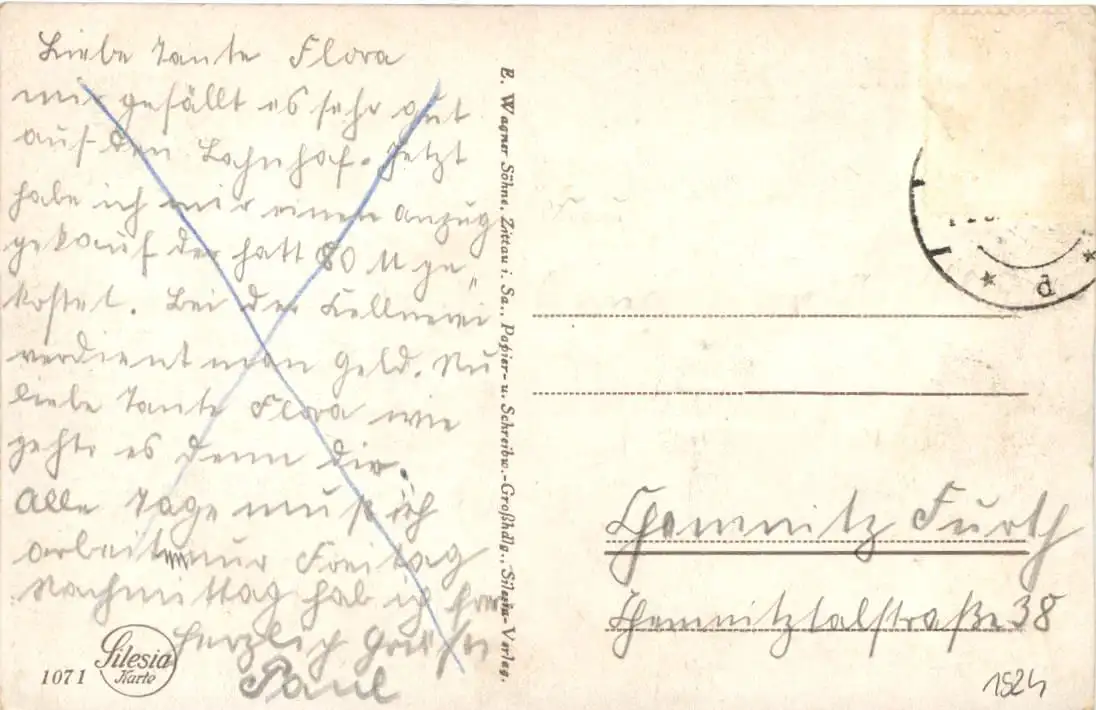 Liebe Tante Flora
mir gefällt es sehr gut
auf den Bahnhof. Jetzt
habe ich mir einen Anzug
gekauf der hatt 80 M ge„
kostet. Bei der Kellnerei
verdient man Geld. Nu
liebe Tante Flora wie
gehts es denn dir.
Alle Tage muß ich
arbeit nur Freitag
Nachmittag hab ich frei
herzlich Grüßt
Paul
1071
Silesia
Karte
E. Wagner Söhne, Zittau i. Sa., Papier- u. Schreibw.-Großhdlg., Silesia-Verlag.
* d *
Chemnitz Furth
Chemnitztalstraße 38
1924